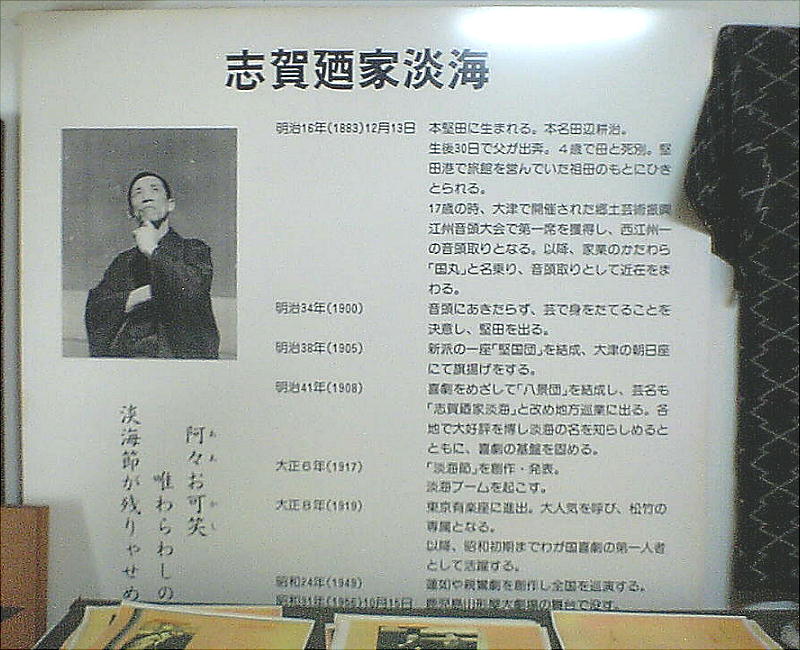 志賀廼家淡海
明治16年(1883)12月13日 本堅田に生まれる。本名田辺耕治。
生後30日で父が出奔。４歳で母と死別。堅
田港で旅館を営んでいた祖田のもとにひき
とられる。
17歳の時、大津で開催された郷土芸術振興
江州音頭大会で第一席を獲得し、西江州一
の音頭取りとなる。以降、家業のかたわら
「国丸」と名乗り、音頭取りとして近在をま
わる。
明治34年(1900) 音頭にあきたらず、芸で身をたてることを
決意し、堅田を出る。
明治38年(1905) 新派の一座「堅国団」を結成、大津の朝日座
にて旗揚げをする。
明治41年(1908) 喜劇をめざして「八景団」を結成し、芸名も
「志賀廼家淡海」と改め地方巡業に出る。各
地で大好評を博し淡海の名を知らしめると
ともに、喜劇の基盤を固める。
大正６年(1917) 「淡海節」を創作・発表。
淡海ブームを起こす。
大正８年(1919) 東京有楽座に進出。大人気を呼び、松竹の
専属となる。
以降、昭和初期までわが国喜劇の第一人者
として活躍する。
昭和24年(1949) 蓮如や親鸞劇を創作し全国を巡演する。
昭和31年(1956)10月15日 鹿児島山形屋大劇場の舞台で没す。
阿々お可笑
唯わらわしの
淡海節が残りゃせめ